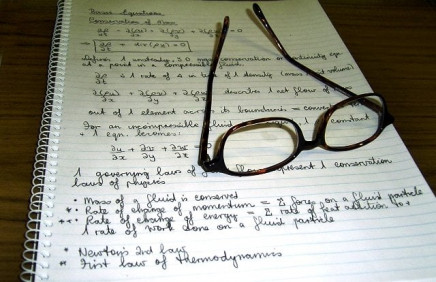 Basic Equations
Conservation of Mass
∂ρ/∂t + ∂(ρu)/∂x + ∂(ρv)/∂y + ∂(ρw)/∂z = 0
⇒ ∂ρ/∂t + div(ρu) = 0
1 unsteady, 3D mass conservation or continuity eqn
@ a point in a compressible fluid.
∂ρ/∂t is 1 rate of Δ in time of 1 density (mass
∂(ρu)/∂x + ∂(ρv)/∂y + ∂(ρw)/∂z describes 1 net flow of
out of 1 element across its boundaries =
For an incompressible fluid constant
+ 1 eqn. becomes:
∂u/∂x + ∂v/∂y + ∂w/∂z
1 governing laws of flow represent 1 conservation
laws of physics
• Mass of a fluid is conserved
•• Rate of change of momentum = Σ forces on a fluid particle
••• Rate of change of energy = Σ rate of heat addition to +
1 rate of work done on a fluid particle
• Newton's 2nd law
•• First law of thermodynamics